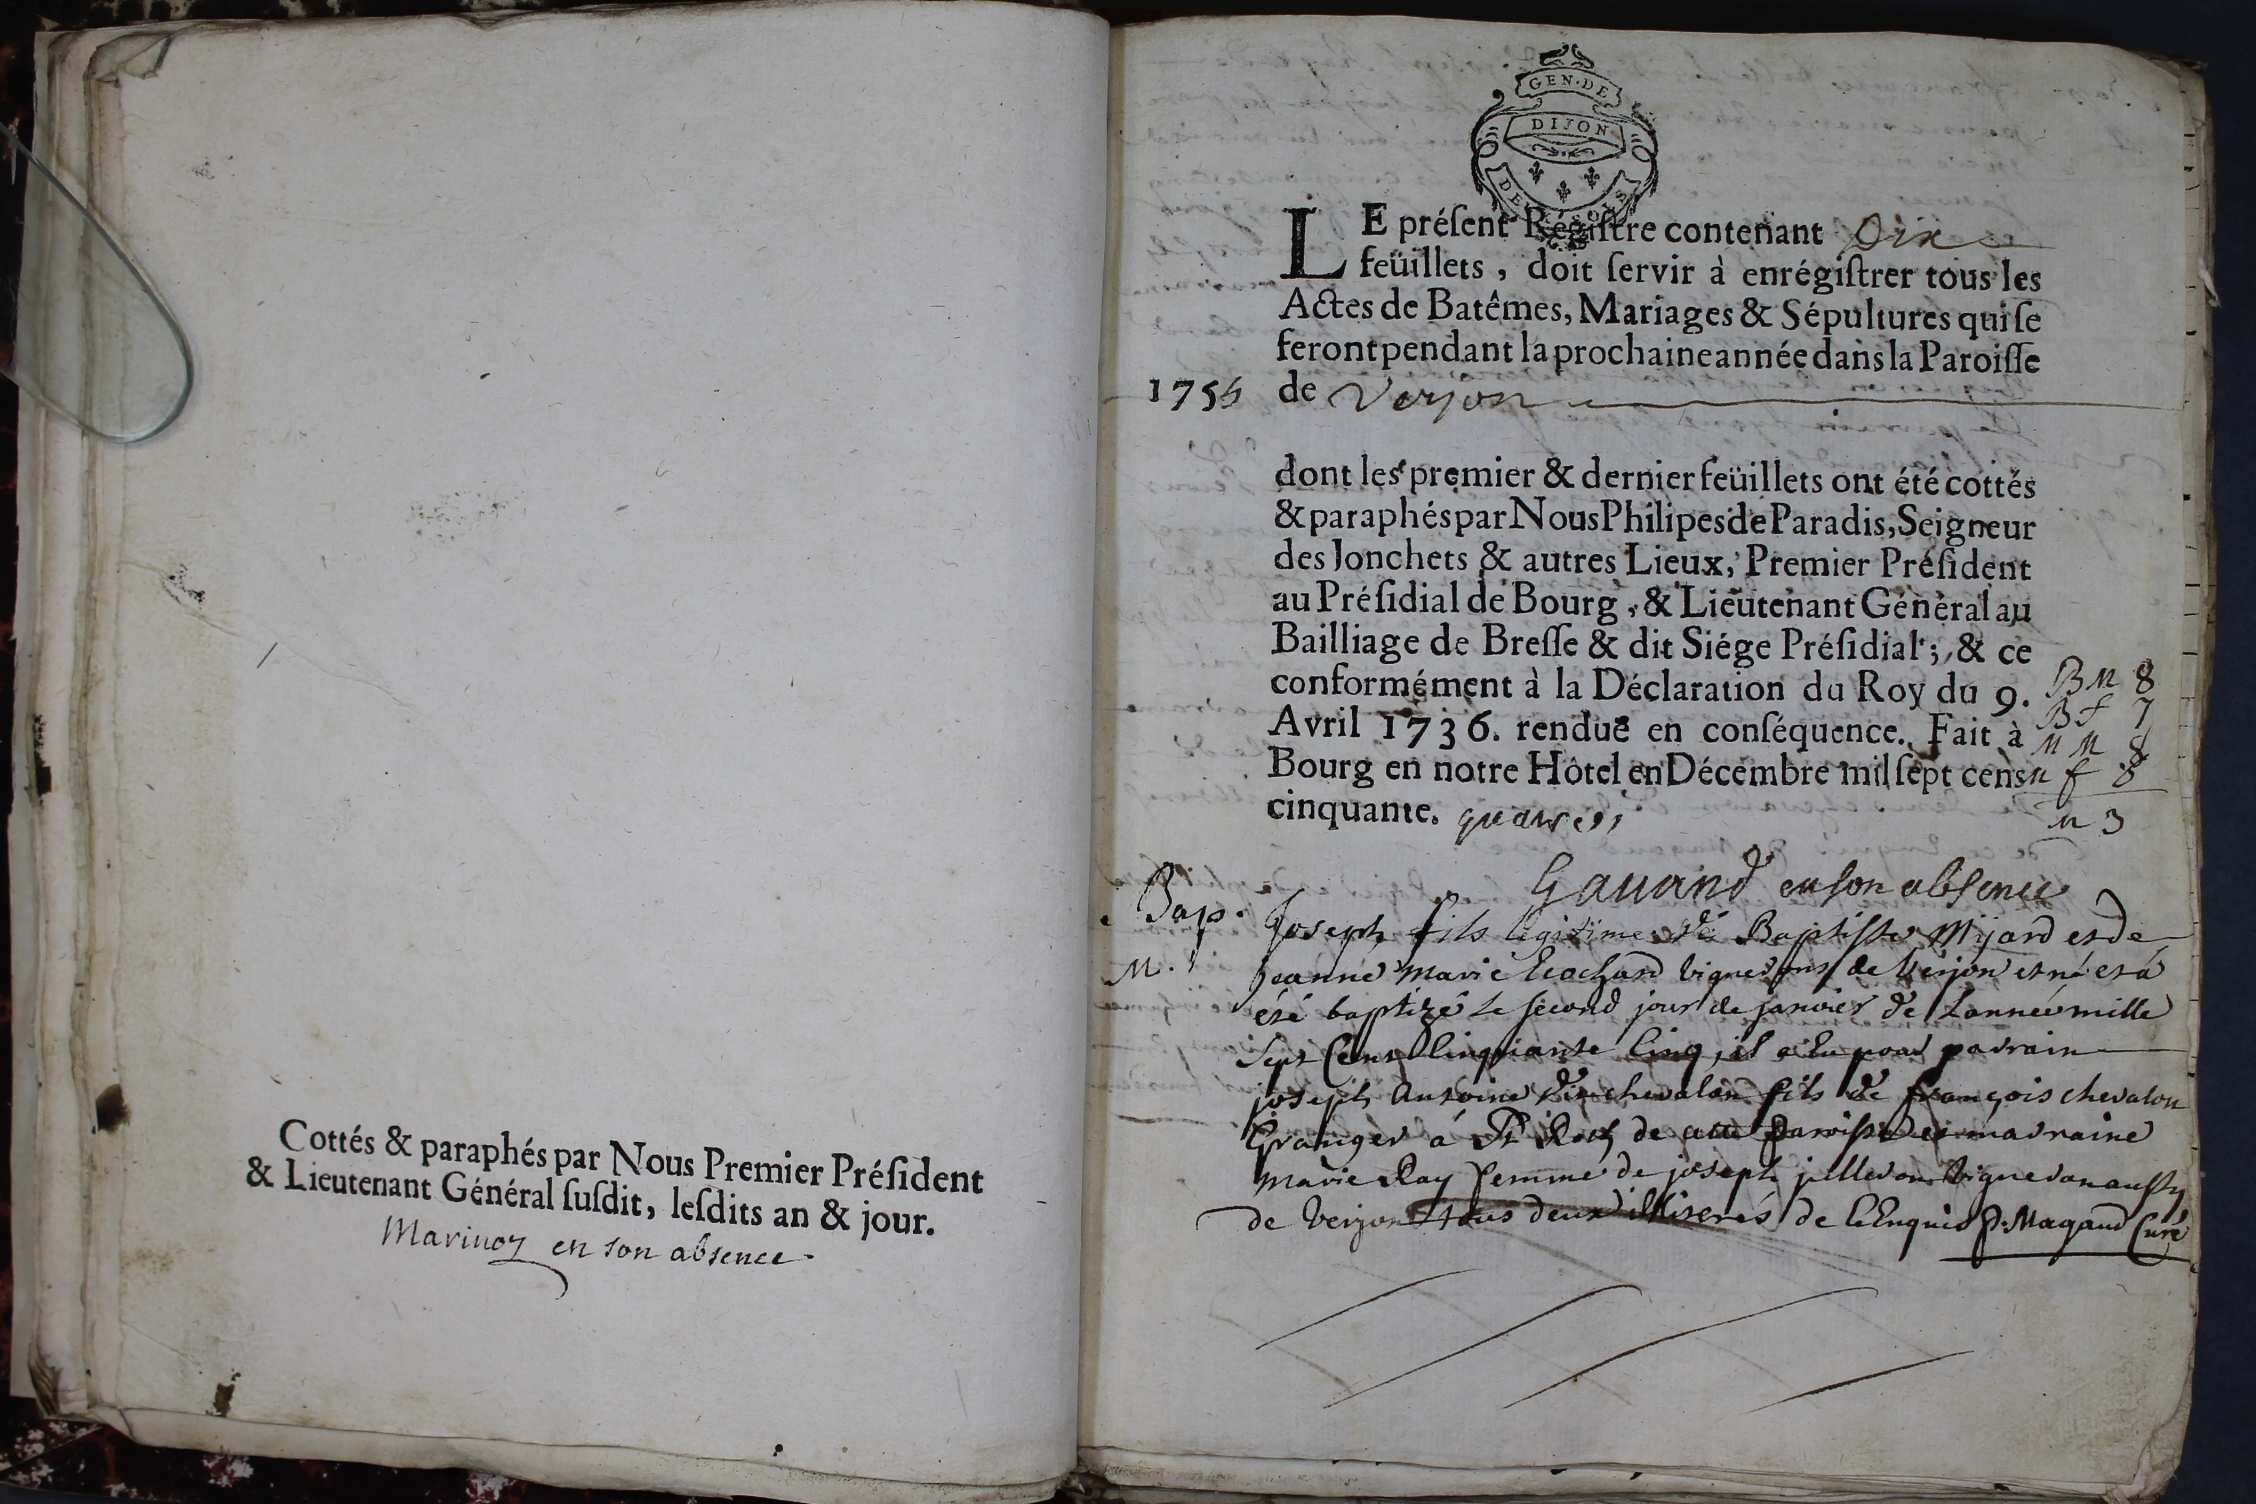 Cottés & paraphés par Nous Premier Préſident
& Lieutenant Général ſuſdit, leſdits an & jour.
en son absence
GEN·DE
DIJON
DEUX SOLS
LE préſent Régiſtre contenant Dix
feüillets, doit ſervir à enrégiſtrer tous les
Actes de Batêmes, Mariages & Sépultures qui ſe
feront pendant la prochaine année dans la Paroiſſe
1755 de Verjon
dont les premier & dernier feüillets ont été cottés
& paraphés par Nous Philipes de Paradis, Seigneur
des Jonchets & autres Lieux, Premier Préſident
au Préſidial de Bourg, & Lieutenant Général au
Bailliage de Breſſe & dit Siége Préſidial; & ce
conformément à la Déclaration du Roy du 9.
Avril 1736. rendue en conſéquence. Fait à
Bourg en notre Hôtel en Décembre mil ſept cens
cinquante. quatre
BM 8
Bf 7
MM 8
M f 8
M 3
Gauand en son absence
Bap.
M. 1
Joseph fils légitime de Baptiste Mijard et de
Jeanne Marie vignerons de Verjon et né et á
été baptizé le second jour de janvier de L'année mille
sept Cent Cinquante Cinq, il a Eu pour parrain
joseph Antoine chevalon fils de françois chevalon
Granger á St Roch de cette paroisse et marraine
Marie Ray femme de joseph vigneron aussy
de Verjon tous deux illiterés de ce Enquis P. Magaud Curé